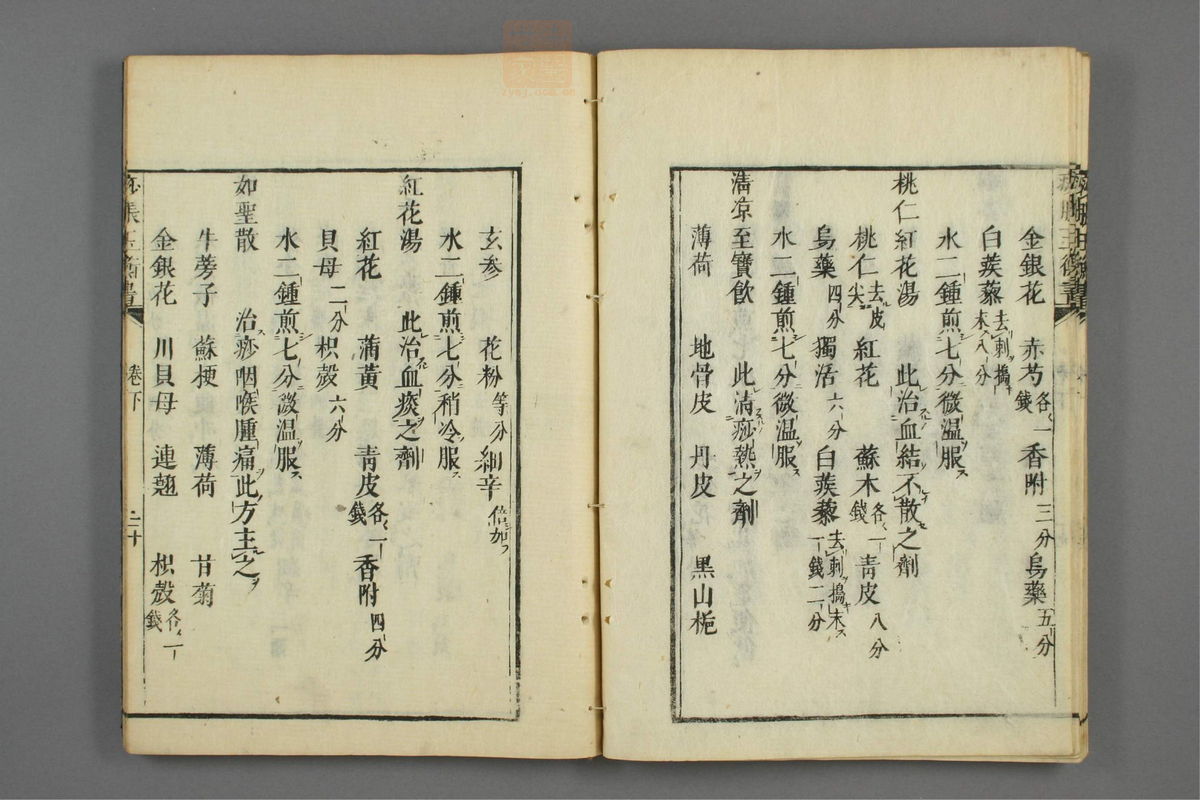 金銀花　赤芍各一錢　香附三分　烏藥五分
白蒺藜去刺搗末八分
水二鍾煎七分微温服
桃仁紅花湯　此治血結不散之劑
桃仁去皮尖　紅花　蘇木各一錢　青皮八分
烏藥四分　獨活六分　白蒺藜去刺搗末一錢二分
水二鍾煎七分微温服
清凉至寶飲　此清痧熱之劑
薄荷　地骨皮　丹皮　黒山梔
玄参　花粉等分　細辛倍加
水二鍾煎七分稍冷服
紅花湯　此治血痰之劑
紅花　蒲黄　青皮各一錢　香附四分
貝母二分　枳殻六分
水二鍾煎七分微温服
如聖散　治痧咽喉腫痛此方主之
牛蒡子　蘇梗　薄荷　甘菊
金銀花　川貝母　連翹　枳殻各一錢
卷下　二十